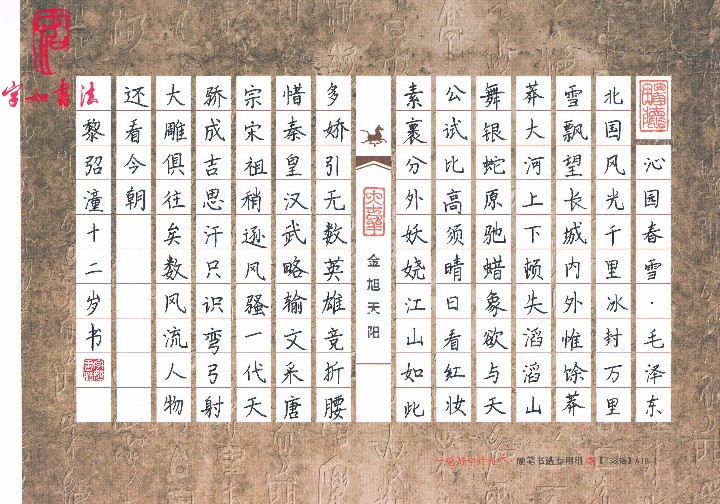 沁园春雪·毛泽东
北国风光千里冰封万里
雪飘望长城内外惟馀莽
莽大河上下顿失滔滔山
舞银蛇原驰蜡象欲与天
公试比高须晴日看红妆
素裹分外妖娆江山如此
金旭天阳
多娇引无数英雄竞折腰
惜秦皇汉武略输文采唐
宗宋祖稍逊风骚一代天
骄成吉思汗只识弯弓射
大雕俱往矣数风流人物
还看今朝
黎弨潼十二岁书
字如书法
硬笔书法专用纸